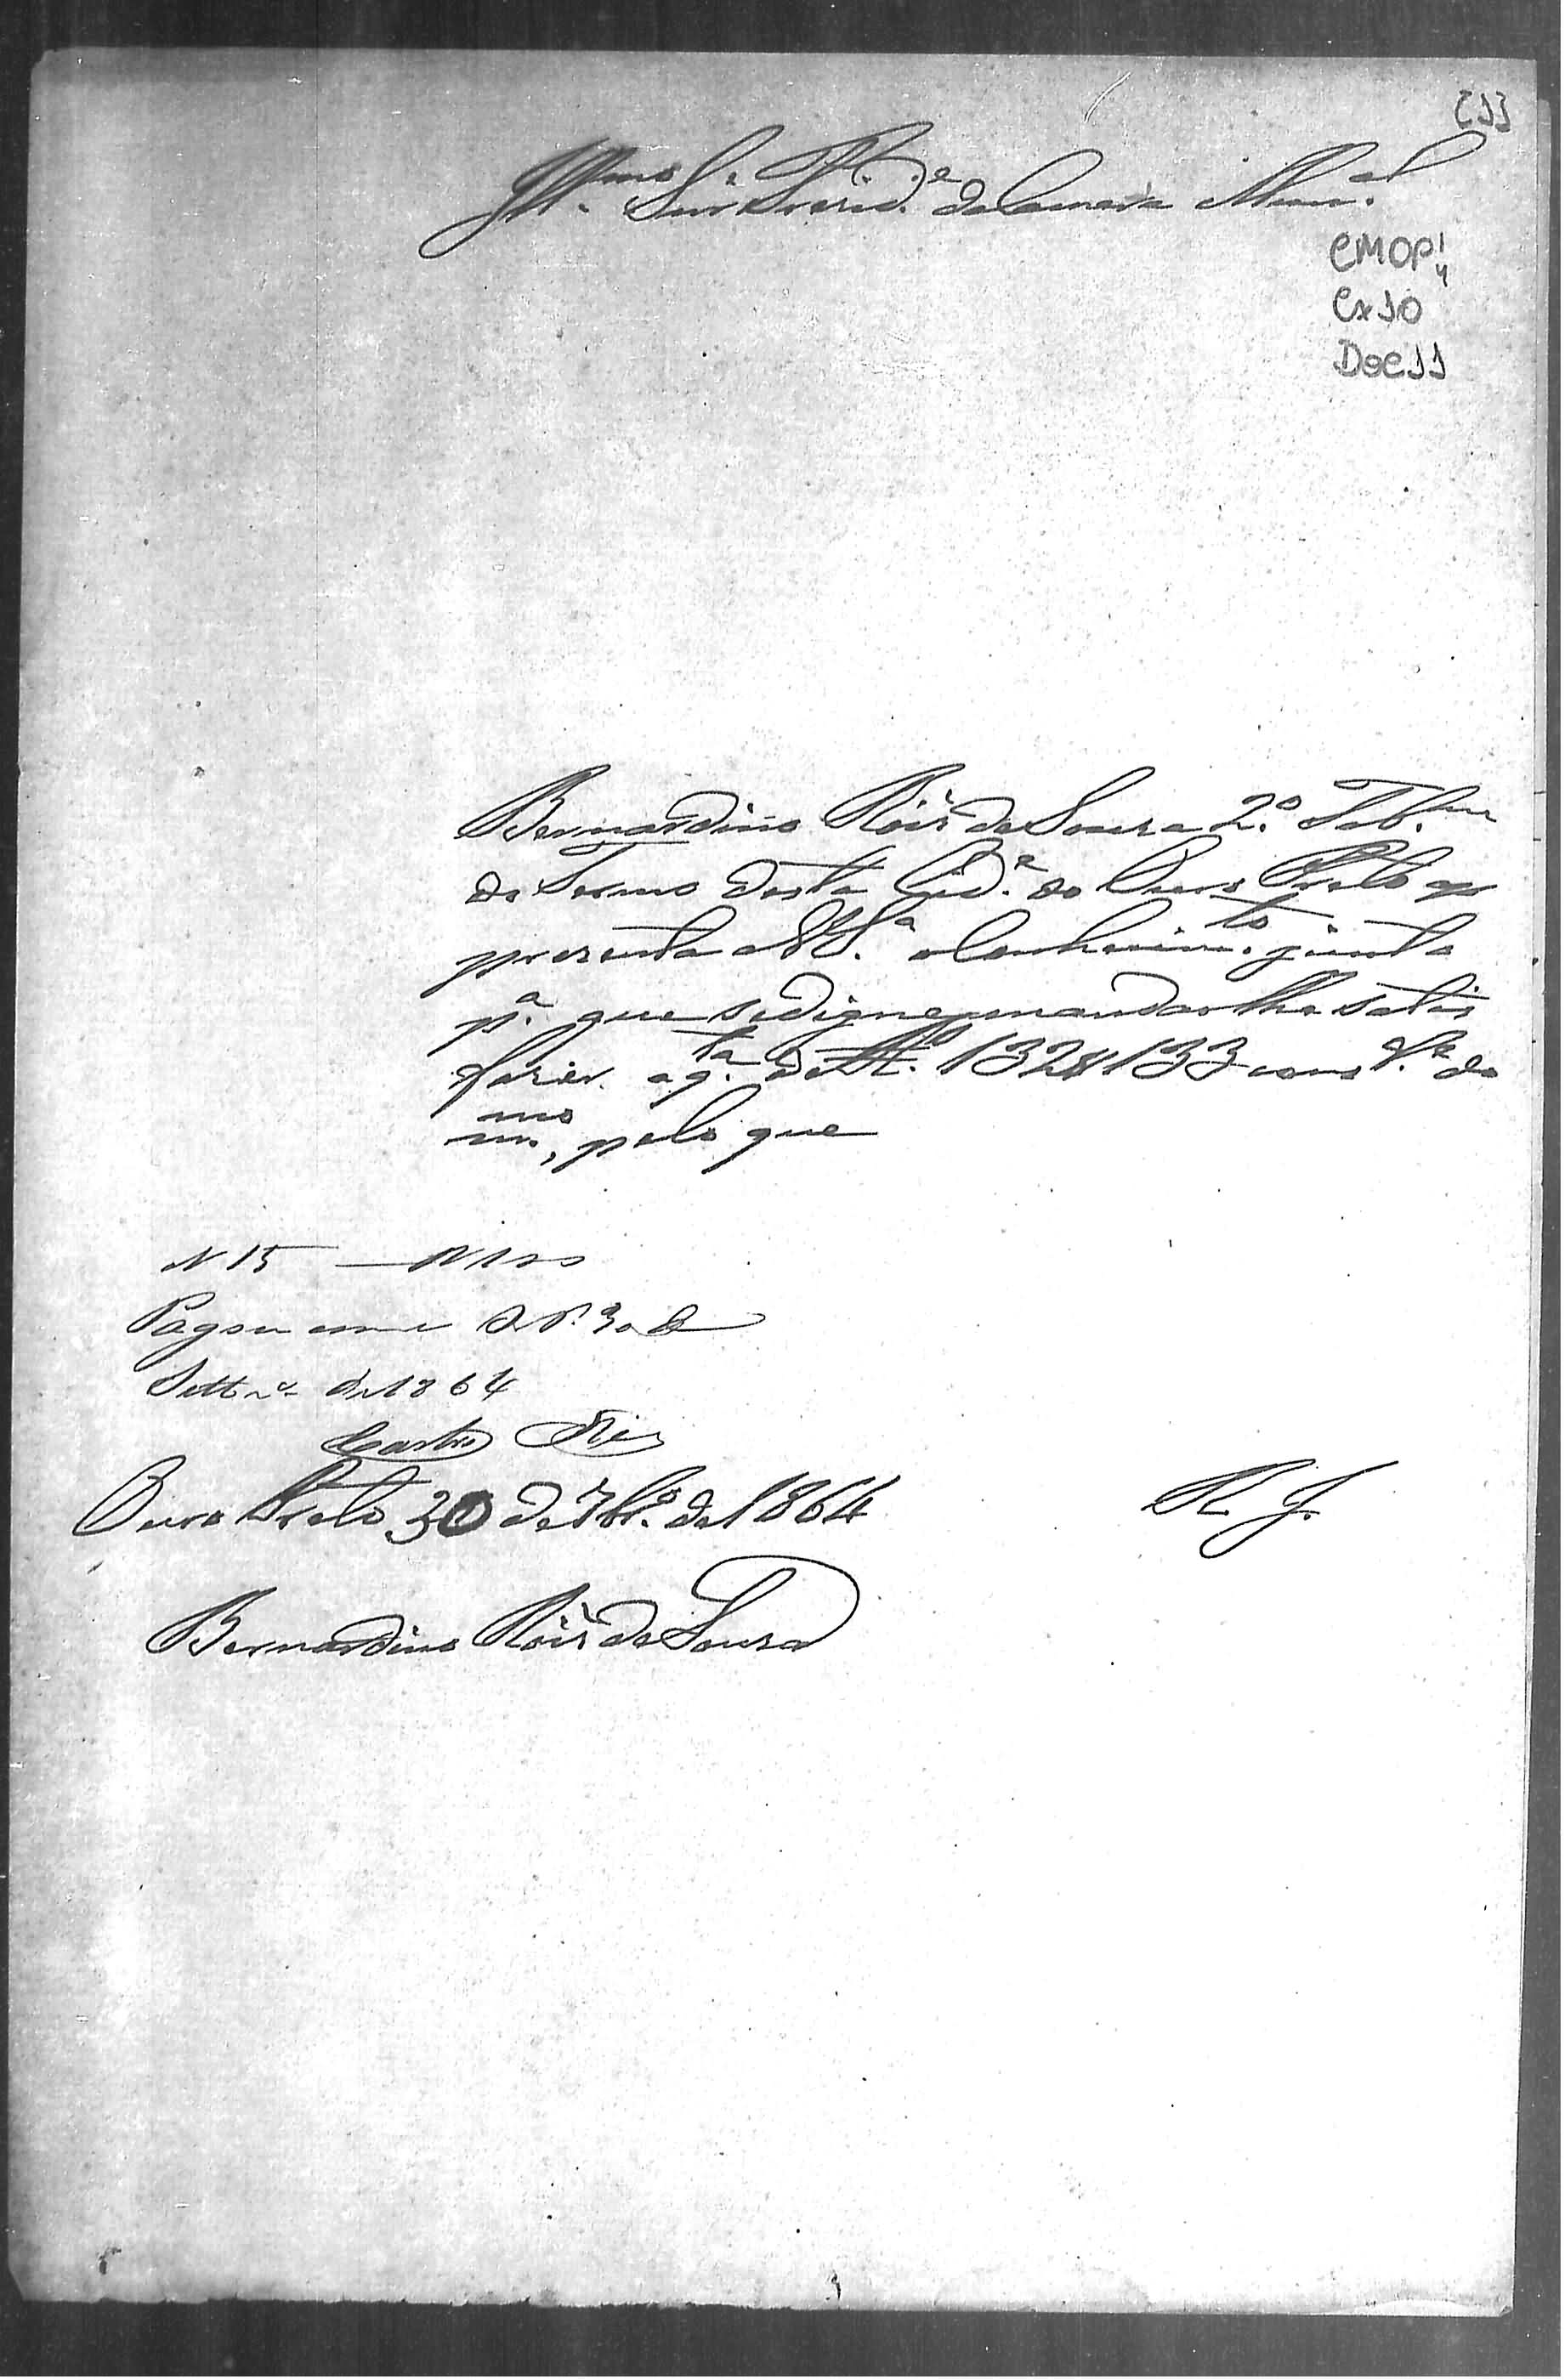 [11]
Illmo. Snr. Presid.e da Camara Mun.al
CMOP 1/4
Cx 10
Doc 11
Bernardino Roiz de Souza 2.º Tab.am
do Termo desta Cid.e do Ouro Preto ap
presenta a V S.a o Conhecim.to junto
p.a que se digne mandar lhe satis
fazer a q.ta de 132$133 cons.te do
m.mo, pelo que
N 15
Pagou
Settr.o de 1864
Castro
Ouro Preto 30 de 7br.o de 1864
R. J.
Bernardino Roiz de Souza